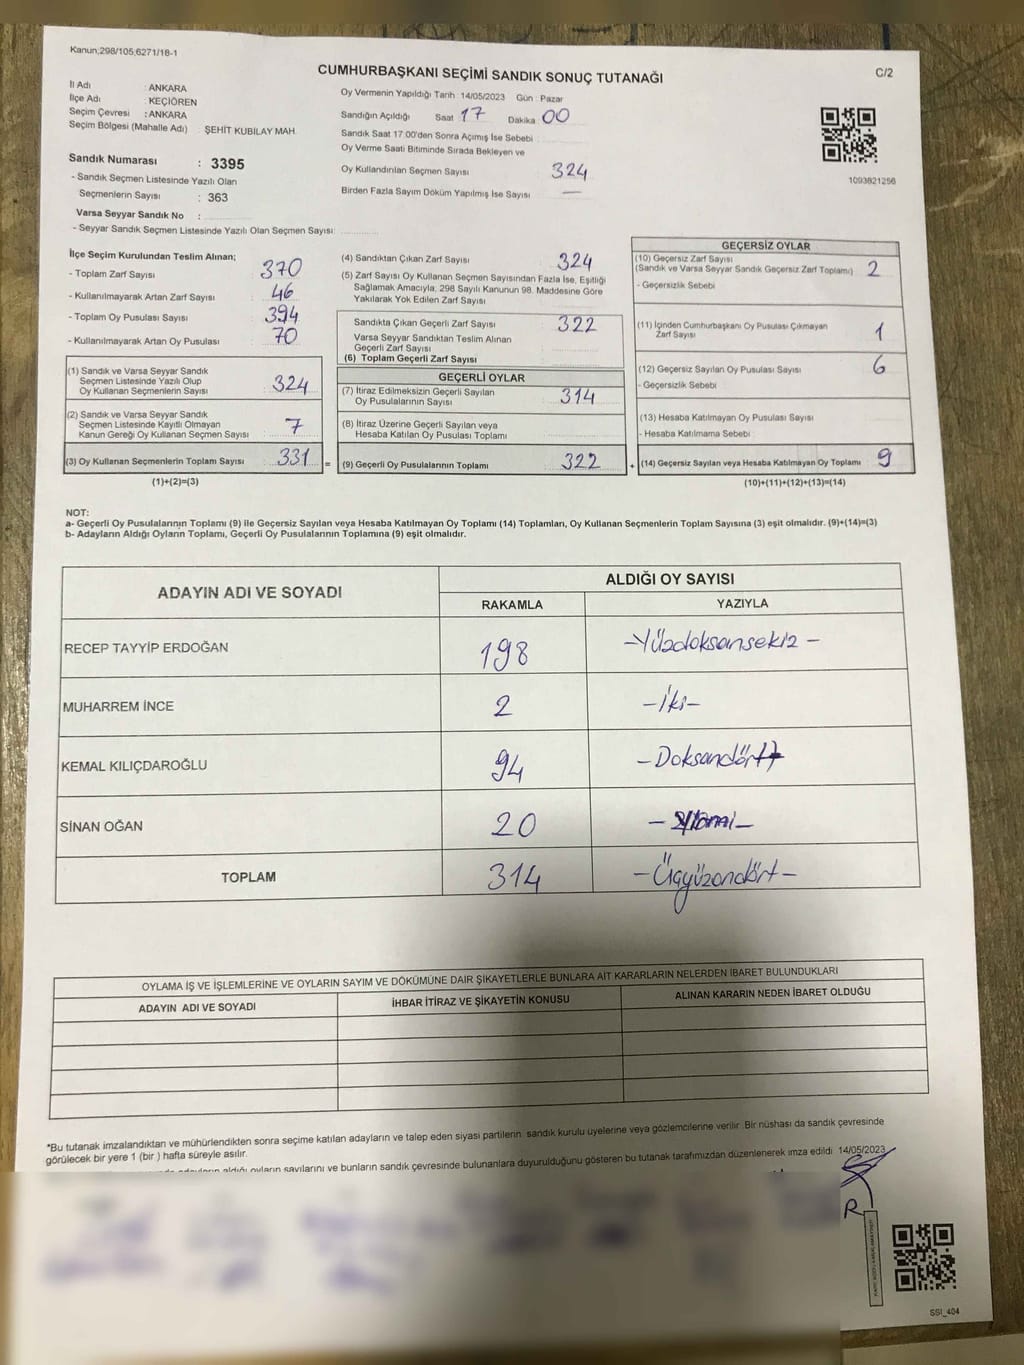 Kanun;298/105,6271/18-1
C/2
CUMHURBAŞKANI SEÇİMİ SANDIK SONUÇ TUTANAĞI
İl Adı : ANKARA
İlçe Adı : KEÇİÖREN
Seçim Çevresi : ANKARA
Seçim Bölgesi (Mahalle Adı) : ŞEHİT KUBİLAY MAH.
Sandık Numarası : 3395
- Sandık Seçmen Listesinde Yazılı Olan
Seçmenlerin Sayısı : 363
Varsa Seyyar Sandık No :
- Seyyar Sandık Seçmen Listesinde Yazılı Olan Seçmen Sayısı:
Oy Vermenin Yapıldığı Tarih : 14/05/2023 Gün : Pazar
Sandığın Açıldığı Saat 17 Dakika 00
Sandık Saat 17:00'den Sonra Açımış İse Sebebi
Oy Verme Saati Bitiminde Sırada Bekleyen ve
Oy Kullandırılan Seçmen Sayısı 324
Birden Fazla Sayım Döküm Yapılmış İse Sayısı —
1093821256
İlçe Seçim Kurulundan Teslim Alınan;
- Toplam Zarf Sayısı 370
- Kullanılmayarak Artan Zarf Sayısı 46
- Toplam Oy Pusulası Sayısı 394
- Kullanılmayarak Artan Oy Pusulası 70
(1) Sandık ve Varsa Seyyar Sandık
Seçmen Listesinde Yazılı Olup
Oy Kullanan Seçmenlerin Sayısı 324
(2) Sandık ve Varsa Seyyar Sandık
Seçmen Listesinde Kayıtlı Olmayan
Kanun Gereği Oy Kullanan Seçmen Sayısı 7
(3) Oy Kullanan Seçmenlerin Toplam Sayısı 331 =
(1)+(2)=(3)
(4) Sandıktan Çıkan Zarf Sayısı 324
(5) Zarf Sayısı Oy Kullanan Seçmen Sayısından Fazla İse, Eşitliği
Sağlamak Amacıyla, 298 Sayılı Kanunun 98. Maddesine Göre
Yakılarak Yok Edilen Zarf Sayısı
Sandıkta Çıkan Geçerli Zarf Sayısı 322
Varsa Seyyar Sandıktan Teslim Alınan
Geçerli Zarf Sayısı:
(6) Toplam Geçerli Zarf Sayısı
GEÇERLİ OYLAR
(7) İtiraz Edilmeksizin Geçerli Sayılan
Oy Pusulalarının Sayısı 314
(8) İtiraz Üzerine Geçerli Sayılan veya
Hesaba Katılan Oy Pusulası Toplamı
(9) Geçerli Oy Pusulalarının Toplamı 322 +
GEÇERSİZ OYLAR
(10) Geçersiz Zarf Sayısı
(Sandık ve Varsa Seyyar Sandık Geçersiz Zarf Toplamı) 2
- Geçersizlik Sebebi
(11) İçinden Cumhurbaşkanı Oy Pusulası Çıkmayan
Zarf Sayısı 1
(12) Geçersiz Sayılan Oy Pusulası Sayısı 6
- Geçersizlik Sebebi
(13) Hesaba Katılmayan Oy Pusulası Sayısı
- Hesaba Katılmama Sebebi
(14) Geçersiz Sayılan veya Hesaba Katılmayan Oy Toplamı 9
(10)+(11)+(12)+(13)=(14)
NOT:
a- Geçerli Oy Pusulalarının Toplamı (9) ile Geçersiz Sayılan veya Hesaba Katılmayan Oy Toplamı (14) Toplamları, Oy Kullanan Seçmenlerin Toplam Sayısına (3) eşit olmalıdır. (9)+(14)=(3)
b- Adayların Aldığı Oyların Toplamı, Geçerli Oy Pusulalarının Toplamına (9) eşit olmalıdır.
ADAYIN ADI VE SOYADI
ALDIĞI OY SAYISI
RAKAMLA YAZIYLA
RECEP TAYYİP ERDOĞAN 198 -Yüzdoksansekiz-
MUHARREM İNCE 2 -İki-
KEMAL KILIÇDAROĞLU 94 -Doksandört-
SİNAN OĞAN 20
TOPLAM 314 -Üçyüzondört-
OYLAMA İŞ VE İŞLEMLERİNE VE OYLARIN SAYIM VE DÖKÜMÜNE DAİR ŞİKAYETLERLE BUNLARA AİT KARARLARIN NELERDEN İBARET BULUNDUKLARI
ADAYIN ADI VE SOYADI İHBAR İTİRAZ VE ŞİKAYETİN KONUSU ALINAN KARARIN NEDEN İBARET OLDUĞU
*Bu tutanak imzalandıktan ve mühürlendikten sonra seçime katılan adayların ve talep eden siyasi partilerin sandık kurulu üyelerine veya gözlemcilerine verilir. Bir nüshası da sandık çevresinde
görülecek bir yere 1 (bir ) hafta süreyle asılır.
aldığı oyların sayılarını ve bunların sandık çevresinde bulunanlara duyurulduğunu gösteren bu tutanak tarafımızdan düzenlenerek imza edildi. 14/05/2023
R
SSI_404